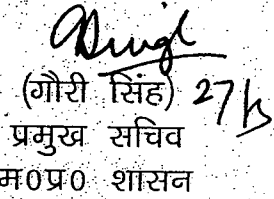 (गौरी सिंह) 27/5
प्रमुख सचिव
म0प्र0 शासन